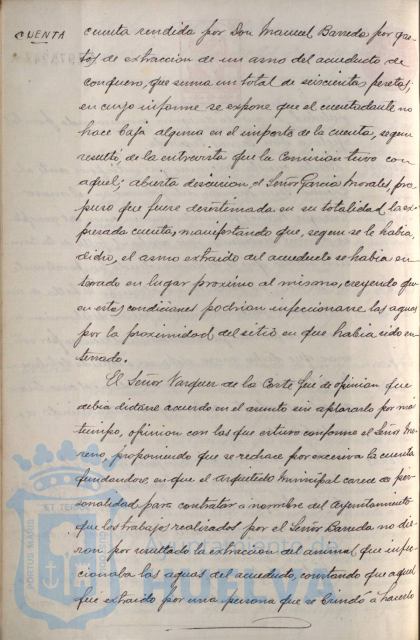 CUENTA
cuenta rendida por Don Manuel Barreda por gas-
tos de extraccion de un asno del acueducto de
conquero, que suma un total de seiscientas pesetas;
en cuyo informe se expone que el cuentadante no
hace baja alguna en el importe de la cuenta, segun
resultó, de la entrevista que la Comision tuvo con
aquel; abierta discusion, el Señor Garcia Morales, pro
puso que fuere desestimada en su totalidad la ex-
presada cuenta, manifestando que, segun se le habia
dicho, el asno extraido del acueducto se habia en
terrado en lugar proximo al mismo, creyendo que
en estas condiciones podrian infeccionarse las aguas
por la proximidad del sitio en que habia sido en-
terrado.
El Señor Vazquez de la Corte fué de opinion que
debia dictarse acuerdo en el asunto sin aplazarlo por mas
tiempo, opinion con las que estuvo conforme el Señor Mo
reno, proponiendo que se rechace por excesiva la cuenta
fundandose, en que el Arquitecto Municipal carece de per-
sonalidad para contratar a nombre del Ayuntamiento
que los trabajos realizados por el Señor Barreda no die-
ron por resultado la extraccion del animal que infec-
cionaba las aguas del acueducto, constando que aquel
fué extraido por una persona que se brindó a hacerlo
PORTUS MARIS
ET TERRAE
Ayuntamiento de